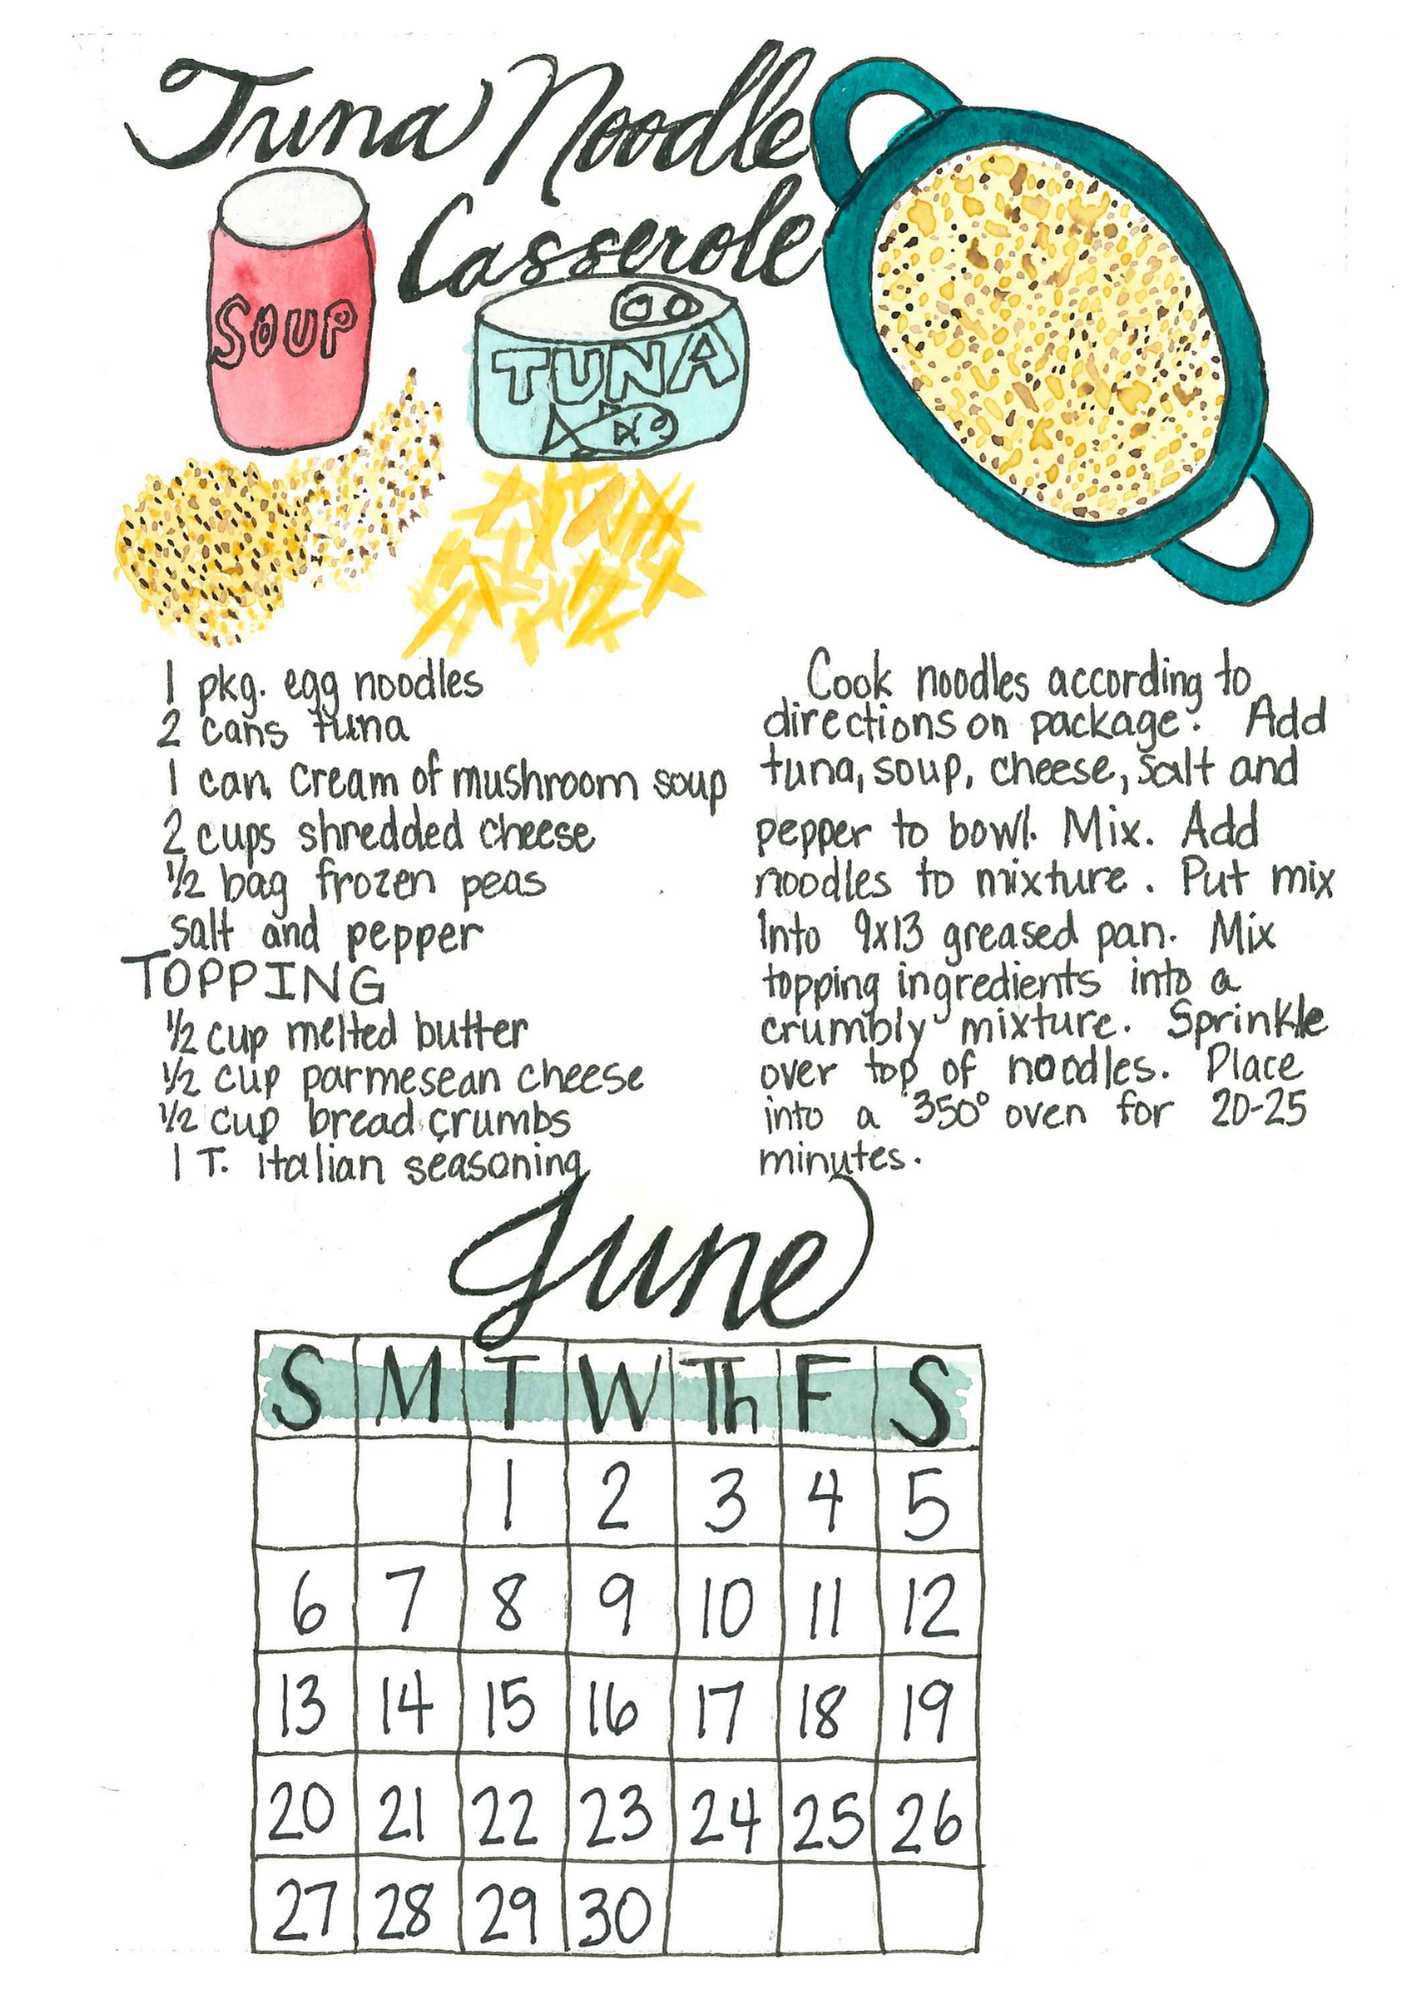 Tuna Noodle
Casserole
SOUP
TUNA
1 pkg. egg noodles
2 cans tuna
1 can cream of mushroom soup
2 cups shredded cheese
1/2 bag frozen peas
salt and pepper
TOPPING
1/2 cup melted butter
1/2 cup parmesean cheese
1/2 cup bread crumbs
1 T. italian seasoning
Cook noodles according to
directions on package. Add
tuna, soup, cheese, salt and
pepper to bowl. Mix. Add
noodles to mixture. Put mix
into 9x13 greased pan. Mix
topping ingredients into a
crumbly mixture. Sprinkle
over top of noodles. Place
into a 350° oven for 20-25
minutes.
June
S M T W Th F S
1 2 3 4 5
6 7 8 9 10 11 12
13 14 15 16 17 18 19
20 21 22 23 24 25 26
27 28 29 30